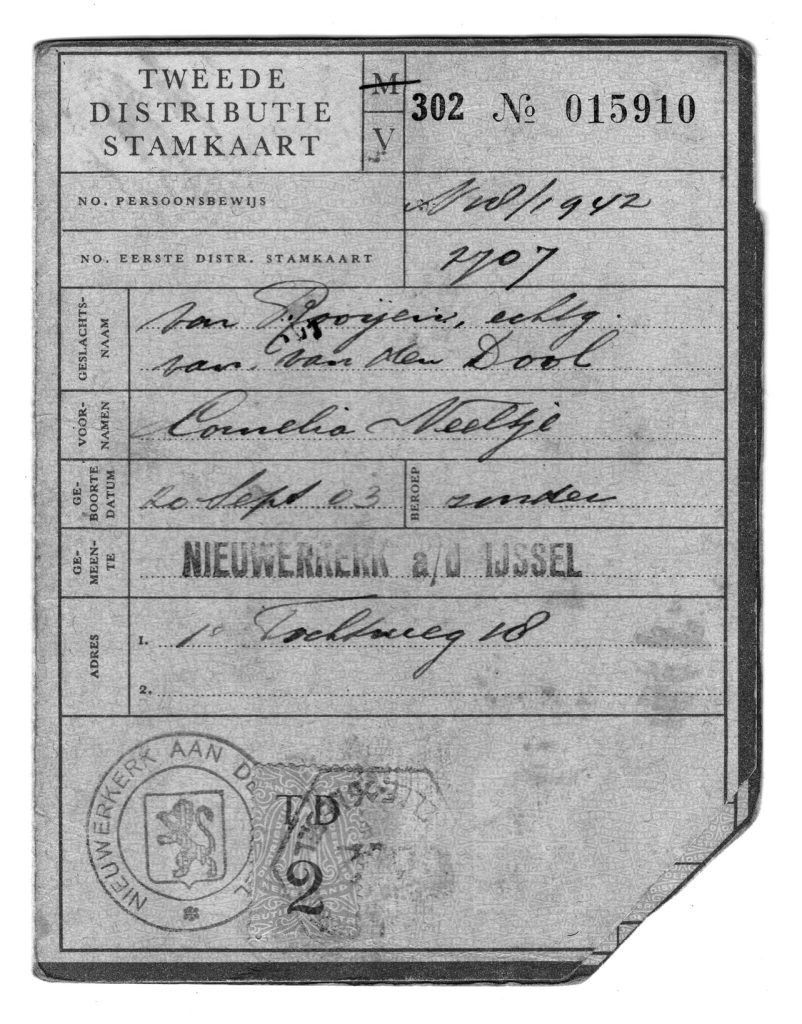 TWEEDE
DISTRIBUTIE
STAMKAART
M
V
302 № 015910
NO. PERSOONSBEWIJS
N 18/1942
NO. EERSTE DISTR. STAMKAART
2707
GESLACHTS-
NAAM
van Rooijen, echtg.
van van den Dool
VOOR-
NAMEN
Cornelia Neeltje
GE-
BOORTE
DATUM
20 Sept 03
BEROEP
zonder
GE-
MEEN-
TE
NIEUWERKERK a/d IJSSEL
ADRES
1. 1e Tochtweg 18
2.
NIEUWERKERK AAN D
TD
2